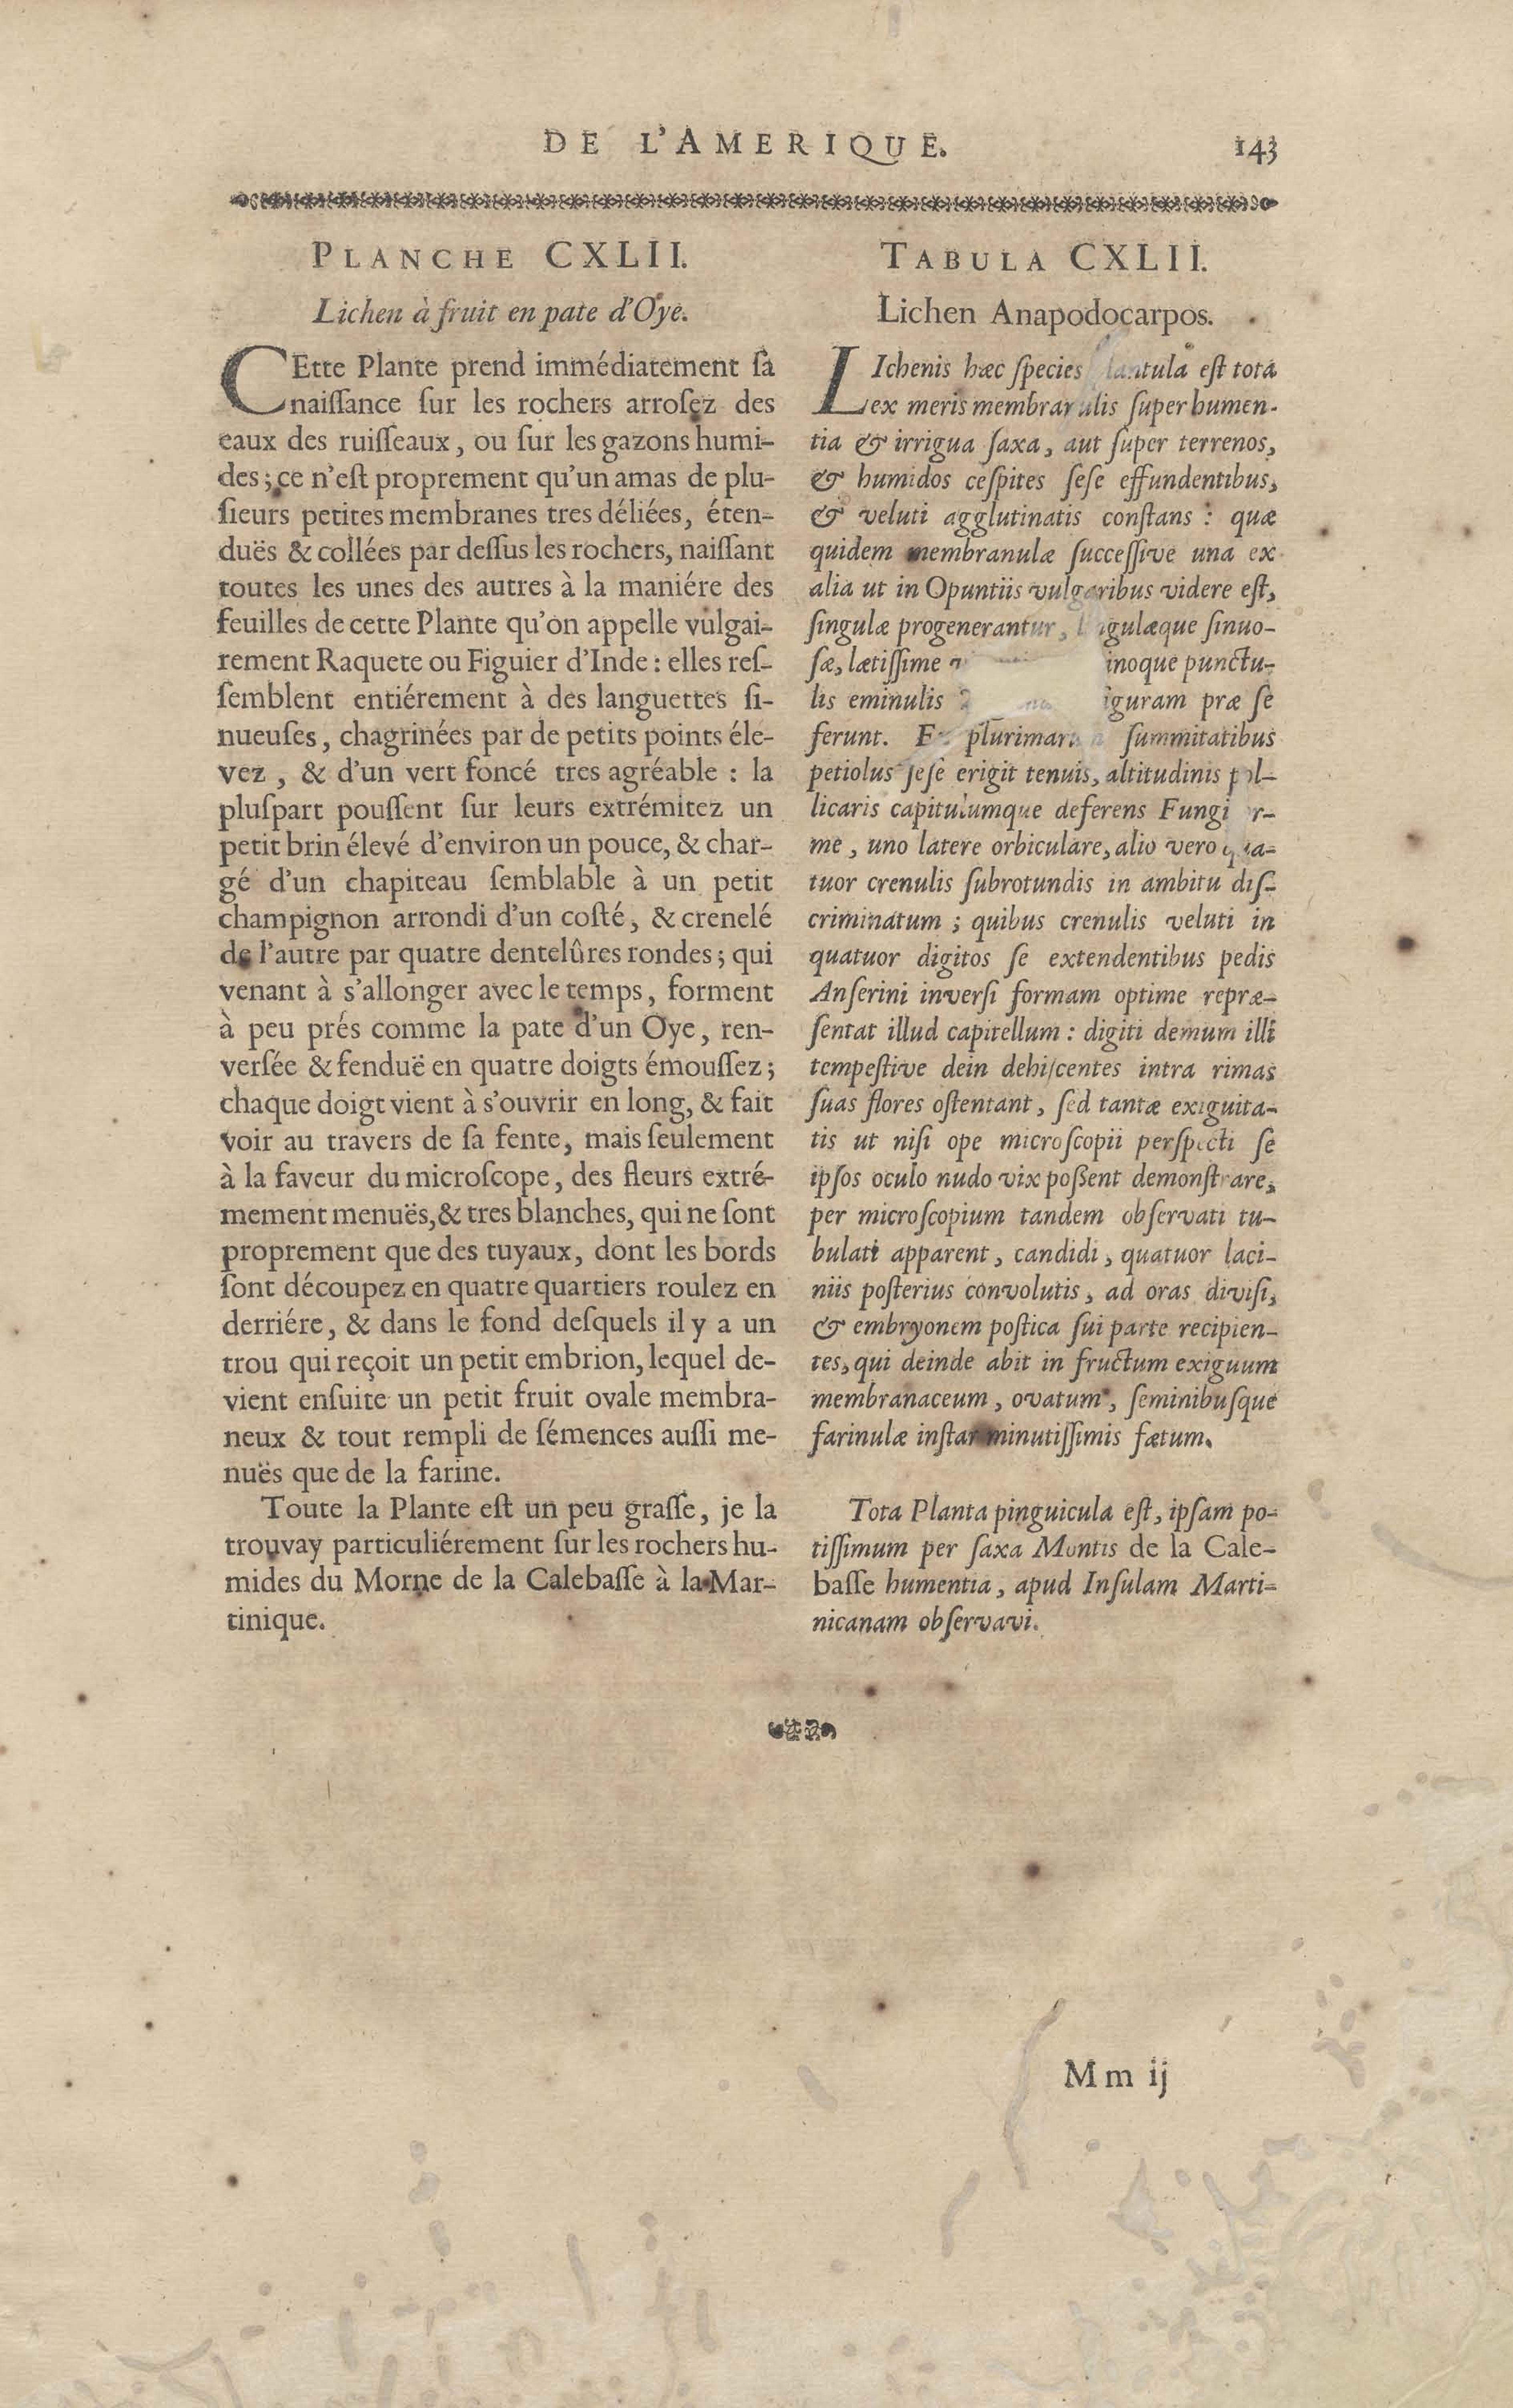 DE L'AMERIQUE. 143
PLANCHE CXLII.
Lichen à fruit en pate d'Oye.
CEtte Plante prend immédiatement ſa
naiſſance ſur les rochers arroſez des
eaux des ruiſſeaux, ou ſur les gazons humi-
des; ce n'eſt proprement qu'un amas de plu-
ſieurs petites membranes tres déliées, éten-
duës & collées par deſſus les rochers, naiſſant
toutes les unes des autres à la maniére des
feuilles de cette Plante qu'on appelle vulgai-
rement Raquete ou Figuier d'Inde: elles reſ-
ſemblent entiérement à des languettes ſi-
nueuſes, chagrinées par de petits points éle-
vez, & d'un vert foncé tres agréable: la
pluſpart pouſſent ſur leurs extrémitez un
petit brin élevé d'environ un pouce, & char-
gé d'un chapiteau ſemblable à un petit
champignon arrondi d'un coſté, & crenelé
de l'autre par quatre dentelûres rondes; qui
venant à s'allonger avec le temps, forment
à peu prés comme la pate d'un Oye, ren-
verſée & fenduë en quatre doigts émouſſez;
chaque doigt vient à s'ouvrir en long, & fait
voir au travers de ſa fente, mais ſeulement
à la faveur du microſcope, des fleurs extré-
mement menuës, & tres blanches, qui ne ſont
proprement que des tuyaux, dont les bords
ſont découpez en quatre quartiers roulez en
derriére, & dans le fond deſquels il y a un
trou qui reçoit un petit embrion, lequel de-
vient enſuite un petit fruit ovale membra-
neux & tout rempli de ſémences auſſi me-
nuës que de la farine.
Toute la Plante eſt un peu graſſe, je la
trouvay particuliérement ſur les rochers hu-
mides du Morne de la Calebaſſe à la Mar-
tinique.
TABULA CXLII.
Lichen Anapodocarpos.
LIchenis hæc ſpecies eſt tota
ex meris ſuper humen-
tia & irrigua ſaxa, aut ſuper terrenos,
& humidos ceſpites ſeſe effundentibus,
& veluti agglutinatis conſtans: quæ
quidem membranulæ ſucceſſive una ex
alia ut in Opuntiis vulgaribus videre eſt,
ſingulæ progenerantur, ſinuo-
ſæ, lætiſſime punctu-
lis eminulis præ ſe
ferunt. plurimarum ſummitatibus
petiolus ſeſe erigit tenuis, altitudinis pol-
licaris capitulumque deferens Fungi
me, uno latere orbiculare, alio vero qua-
tuor crenulis ſubrotundis in ambitu diſ-
criminatum; quibus crenulis veluti in
quatuor digitos ſe extendentibus pedis
Anſerini inverſi formam optime repræ-
ſentat illud capitellum: digiti demum illi
tempeſtive dein dehiſcentes intra rimas
ſuas flores oſtentant, ſed tantæ exiguita-
tis ut niſi ope microſcopii perſpecti ſe
ipſos oculo nudo vix poßent demonſtrare,
per microſcopium tandem obſervati tu-
bulati apparent, candidi, quatuor laci-
niis poſterius convolutis, ad oras diviſi,
& embryonem poſtica ſui parte recipien-
tes, qui deinde abit in fructum exiguum
membranaceum, ovatum, ſeminibuſque
farinulæ inſtar minutiſſimis fætum.
Tota Planta pinguicula eſt, ipſam po-
tiſſimum per ſaxa Montis de la Cale-
baſſe humentia, apud Inſulam Marti-
nicanam obſervavi.
Mm ij